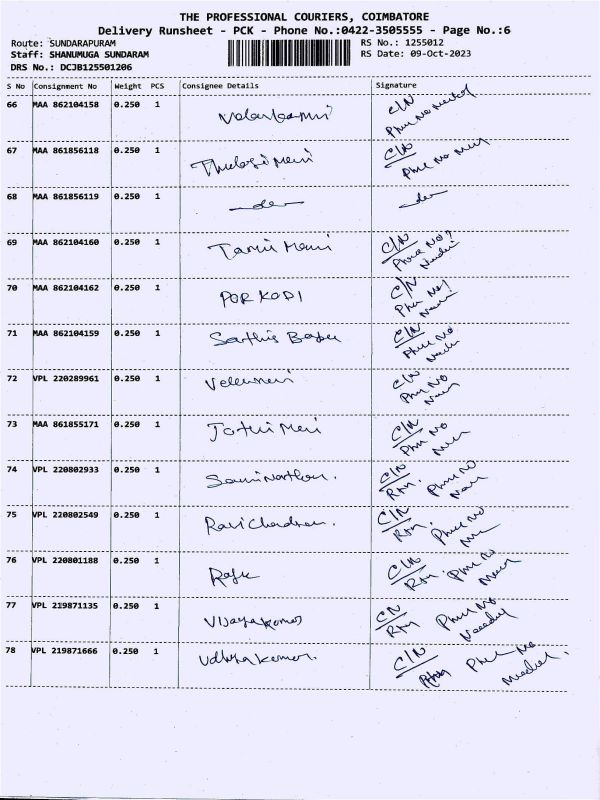 THE PROFESSIONAL COURIERS, COIMBATORE
Delivery Runsheet - PCK - Phone No.:0422-3505555 - Page No.:6
Route: SUNDARAPURAM RS No.: 1255012
Staff: SHANMUGA SUNDARAM RS Date: 09-Oct-2023
DRS No.: DCJB125501206
S No Consignment No Weight PCS Consignee Details Signature
66 MAA 862104158 0.250 1 C/N
Phne No
67 MAA 861856118 0.250 1 Thulasi Mani C/N
Phne No
68 MAA 861856119 0.250 1
69 MAA 862104160 0.250 1 Tamil Mani C/N
Phone No
70 MAA 862104162 0.250 1 PORKODI C/N
Phne No
71 MAA 862104159 0.250 1 Sathis Babu C/N
Phne No
72 VPL 220289961 0.250 1 Velumani C/N
Phne No
73 MAA 861855171 0.250 1 Jothi Mani C/N
Phne No
74 VPL 220802933 0.250 1 C/N
Rtn. Phne No
75 VPL 220802549 0.250 1 Ravi Chandran. C/N
Rtn. Phne No
76 VPL 220801188 0.250 1 Raju C/N
Rtn. Phne No
77 VPL 219871135 0.250 1 Vijayakumar CN
Rtn Phne No
78 VPL 219871666 0.250 1 Udhayakumar. C/N
Rtn Phne No